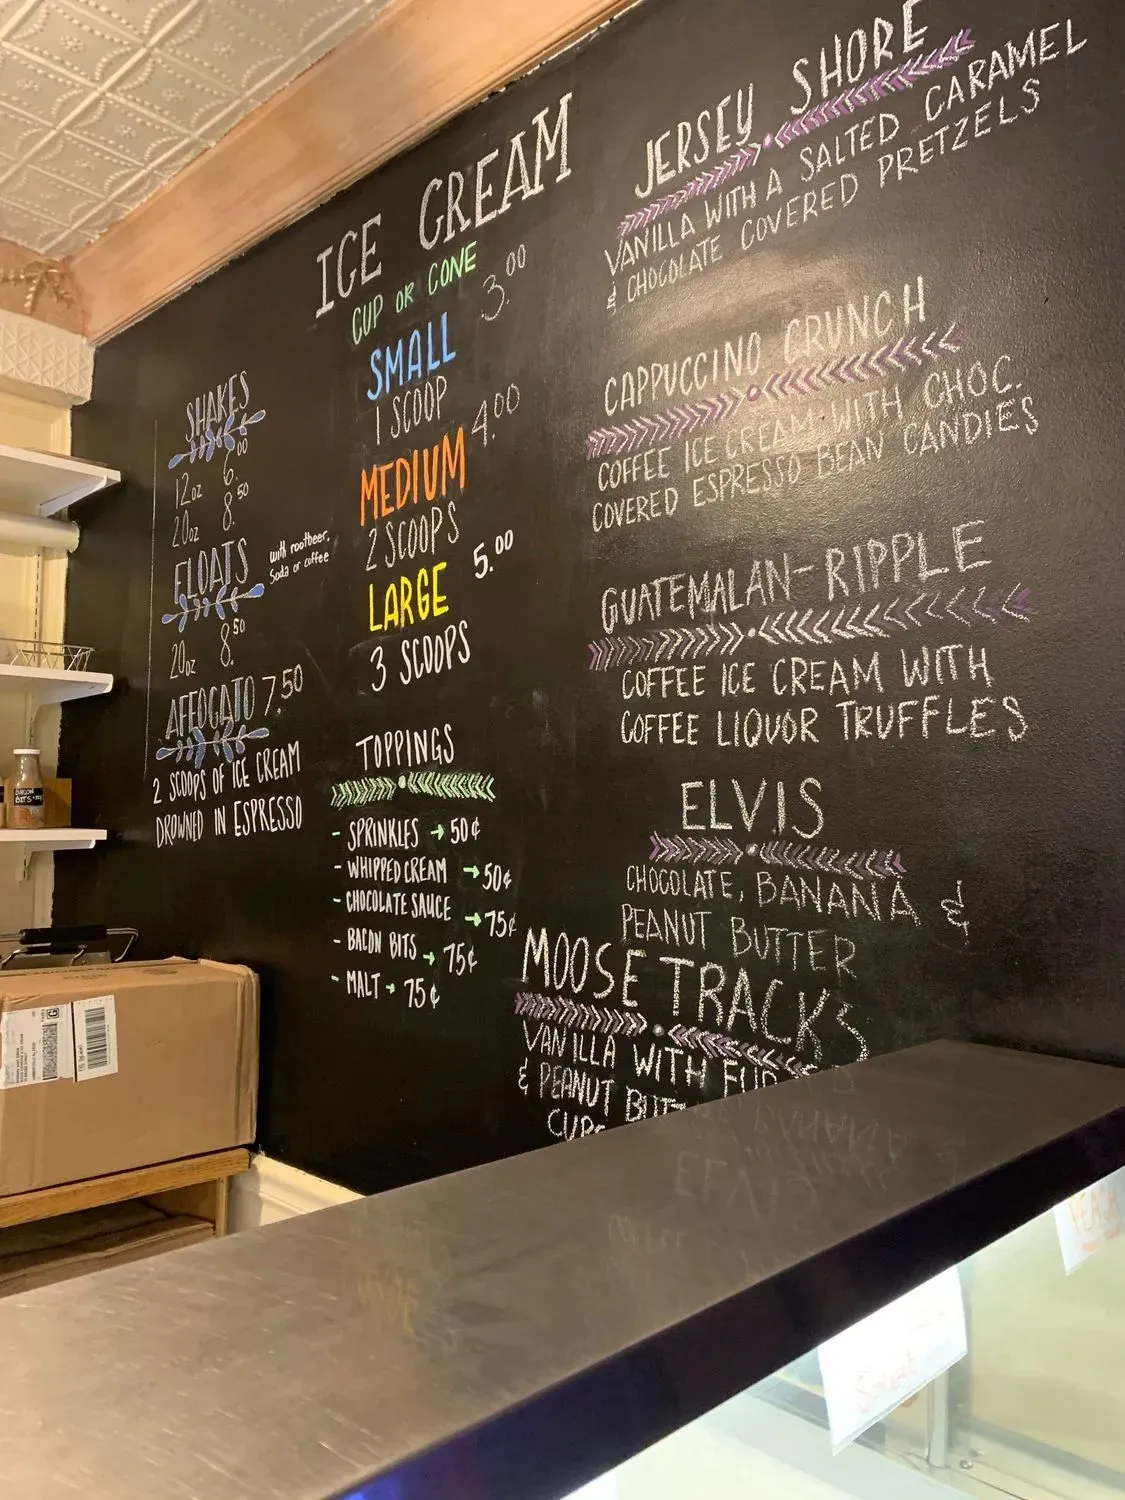 SHAKES
12oz 6.00
20oz 8.50
FLOATS
with rootbeer,
Soda or coffee
20oz 8.50
AFFOGATO 7.50
2 SCOOPS OF ICE CREAM
DROWNED IN ESPRESSO
ICE CREAM
CUP OR CONE
SMALL 3.00
1 SCOOP
MEDIUM 4.00
2 SCOOPS
LARGE 5.00
3 SCOOPS
TOPPINGS
- SPRINKLES → 50¢
- WHIPPED CREAM → 50¢
- CHOCOLATE SAUCE → 75¢
- BACON BITS → 75¢
- MALT → 75¢
JERSEY SHORE
VANILLA WITH A SALTED CARAMEL
& CHOCOLATE COVERED PRETZELS
CAPPUCCINO CRUNCH
COFFEE ICE CREAM WITH CHOC.
COVERED ESPRESSO BEAN CANDIES
GUATEMALAN-RIPPLE
COFFEE ICE CREAM WITH
COFFEE LIQUOR TRUFFLES
ELVIS
CHOCOLATE, BANANA &
PEANUT BUTTER
MOOSE TRACKS
VANILLA WITH
& PEANUT
CUPS
BACON
BITS